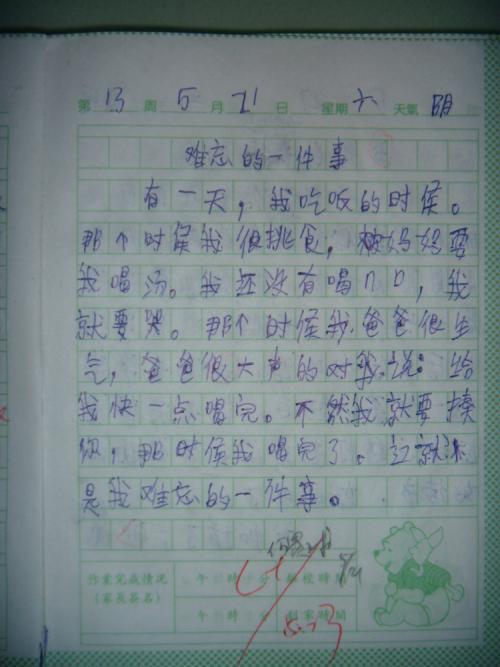 第 13 周 5 月 21 日 星期 六 天氣 阴
难忘的一件事
有一天，我吃饭的时侯。
那个时侯我很挑食，被妈妈要
我喝汤。我还没有喝几口，我
就要哭。那个时侯我爸爸很生
气，爸爸很大声的对我说：给
我快一点喝完。不然我就要揍
你，那时侯我喝完了。这就
是我难忘的一件事。
作業完成情況 午 時 分 離校時間
(家長簽名) 午 時 分 到家時間
5.23